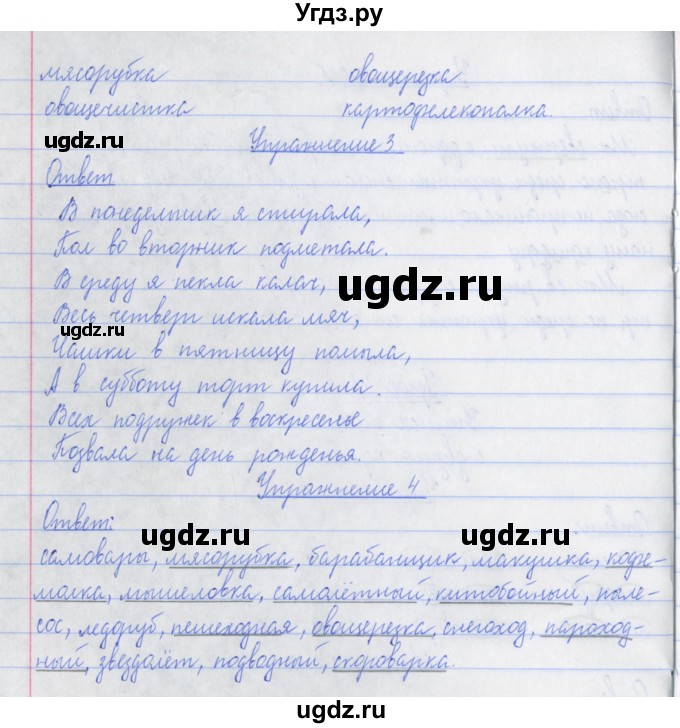 Угдз.ру
мясорубка овощерезка
овощечистка картофелекопалка.
ugdz.ru
Упражнение 3
Ответ
В понедельник я стирала,
Пол во вторник подметала.
В среду я пекла калач,
ugdz.ru
Весь четверг искала мяч,
ugdz.ru
Чашки в пятницу помыла,
А в субботу торт купила.
Всех подружек в воскресенье
Позвала на день рожденья.
Упражнение 4
Ответ:
ugdz.ru ugdz.ru
самовары, мясорубка, барабанщик, макушка, кофе-
молка, мышеловка, самолётный, китобойный, пыле-
сос, ледоруб, пешеходная, овощерезка, снегоход, пароход-
ный, звездолёт, подводный, скороварка.
ugdz.ru